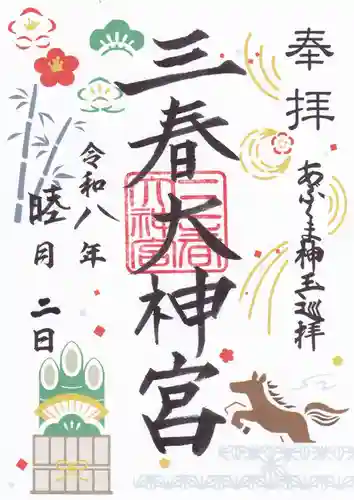 奉拝
あぶくま神玉巡拝
三春大神宮
令和八年
睦月二日